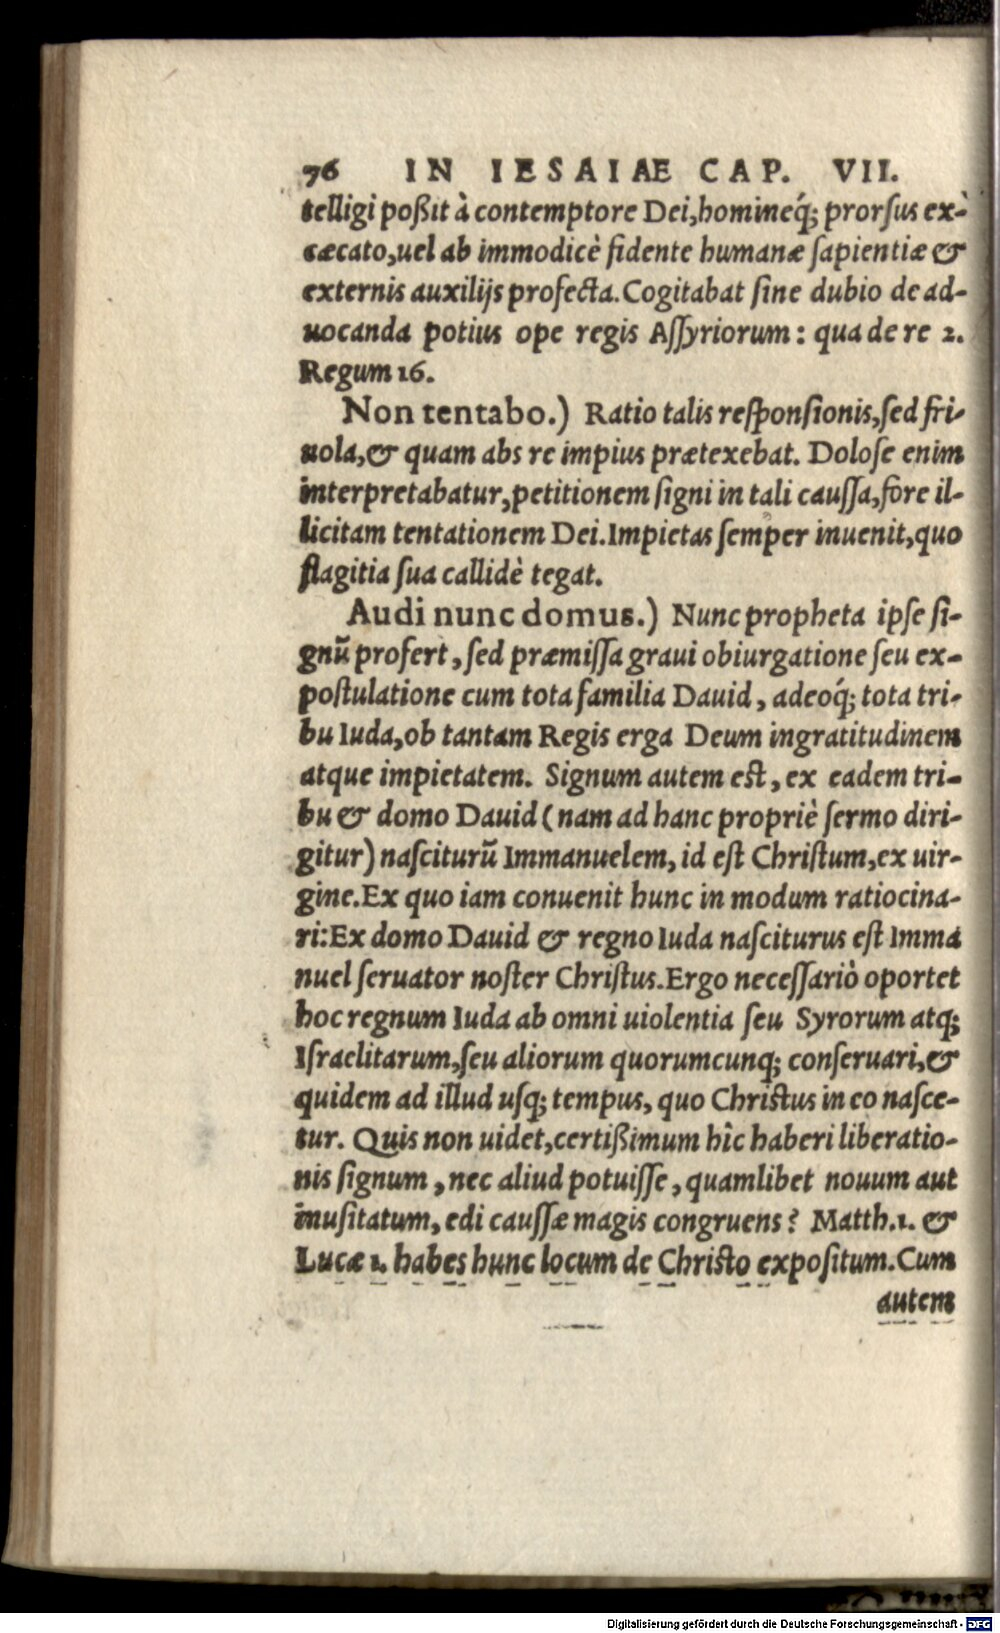 76 IN IESAIAE CAP. VII.
telligi poßit à contemptore Dei, homineq́; prorſus ex-
cæcato, uel ab immodicè fidente humanæ ſapientiæ &
externis auxilijs profecta. Cogitabat ſine dubio de ad-
uocanda potius ope regis Aſſyriorum: qua de re 2.
Regum 16.
Non tentabo.) Ratio talis reſponſionis, ſed fri-
uola, & quam abs re impius prætexebat. Doloſe enim
interpretabatur, petitionem ſigni in tali cauſſa, fore il-
licitam tentationem Dei. Impietas ſemper inuenit, quo
flagitia ſua callidè tegat.
Audi nunc domus.) Nunc propheta ipſe ſi-
gnũ profert, ſed præmiſſa graui obiurgatione ſeu ex-
poſtulatione cum tota familia Dauid, adeoq́; tota tri-
bu Iuda, ob tantam Regis erga Deum ingratitudinem
atque impietatem. Signum autem eſt, ex eadem tri-
bu & domo Dauid (nam ad hanc propriè ſermo diri-
gitur) naſciturũ Immanuelem, id eſt Chriſtum, ex uir-
gine. Ex quo iam conuenit hunc in modum ratiocina-
ri: Ex domo Dauid & regno Iuda naſciturus eſt Imma
nuel ſeruator noſter Chriſtus. Ergo neceſſariò oportet
hoc regnum Iuda ab omni uiolentia ſeu Syrorum atq;
Iſraelitarum, ſeu aliorum quorumcunq; conſeruari, &
quidem ad illud uſq; tempus, quo Chriſtus in eo naſce-
tur. Quis non uidet, certißimum hîc haberi liberatio-
nis ſignum, nec aliud potuiſſe, quamlibet nouum aut
inuſitatum, edi cauſſæ magis congruens? Matth. 1. &
Lucæ 1. habes hunc locum de Chriſto expoſitum. Cum
autem
Digitalisierung gefördert durch die Deutsche Forschungsgemeinschaft - DFG